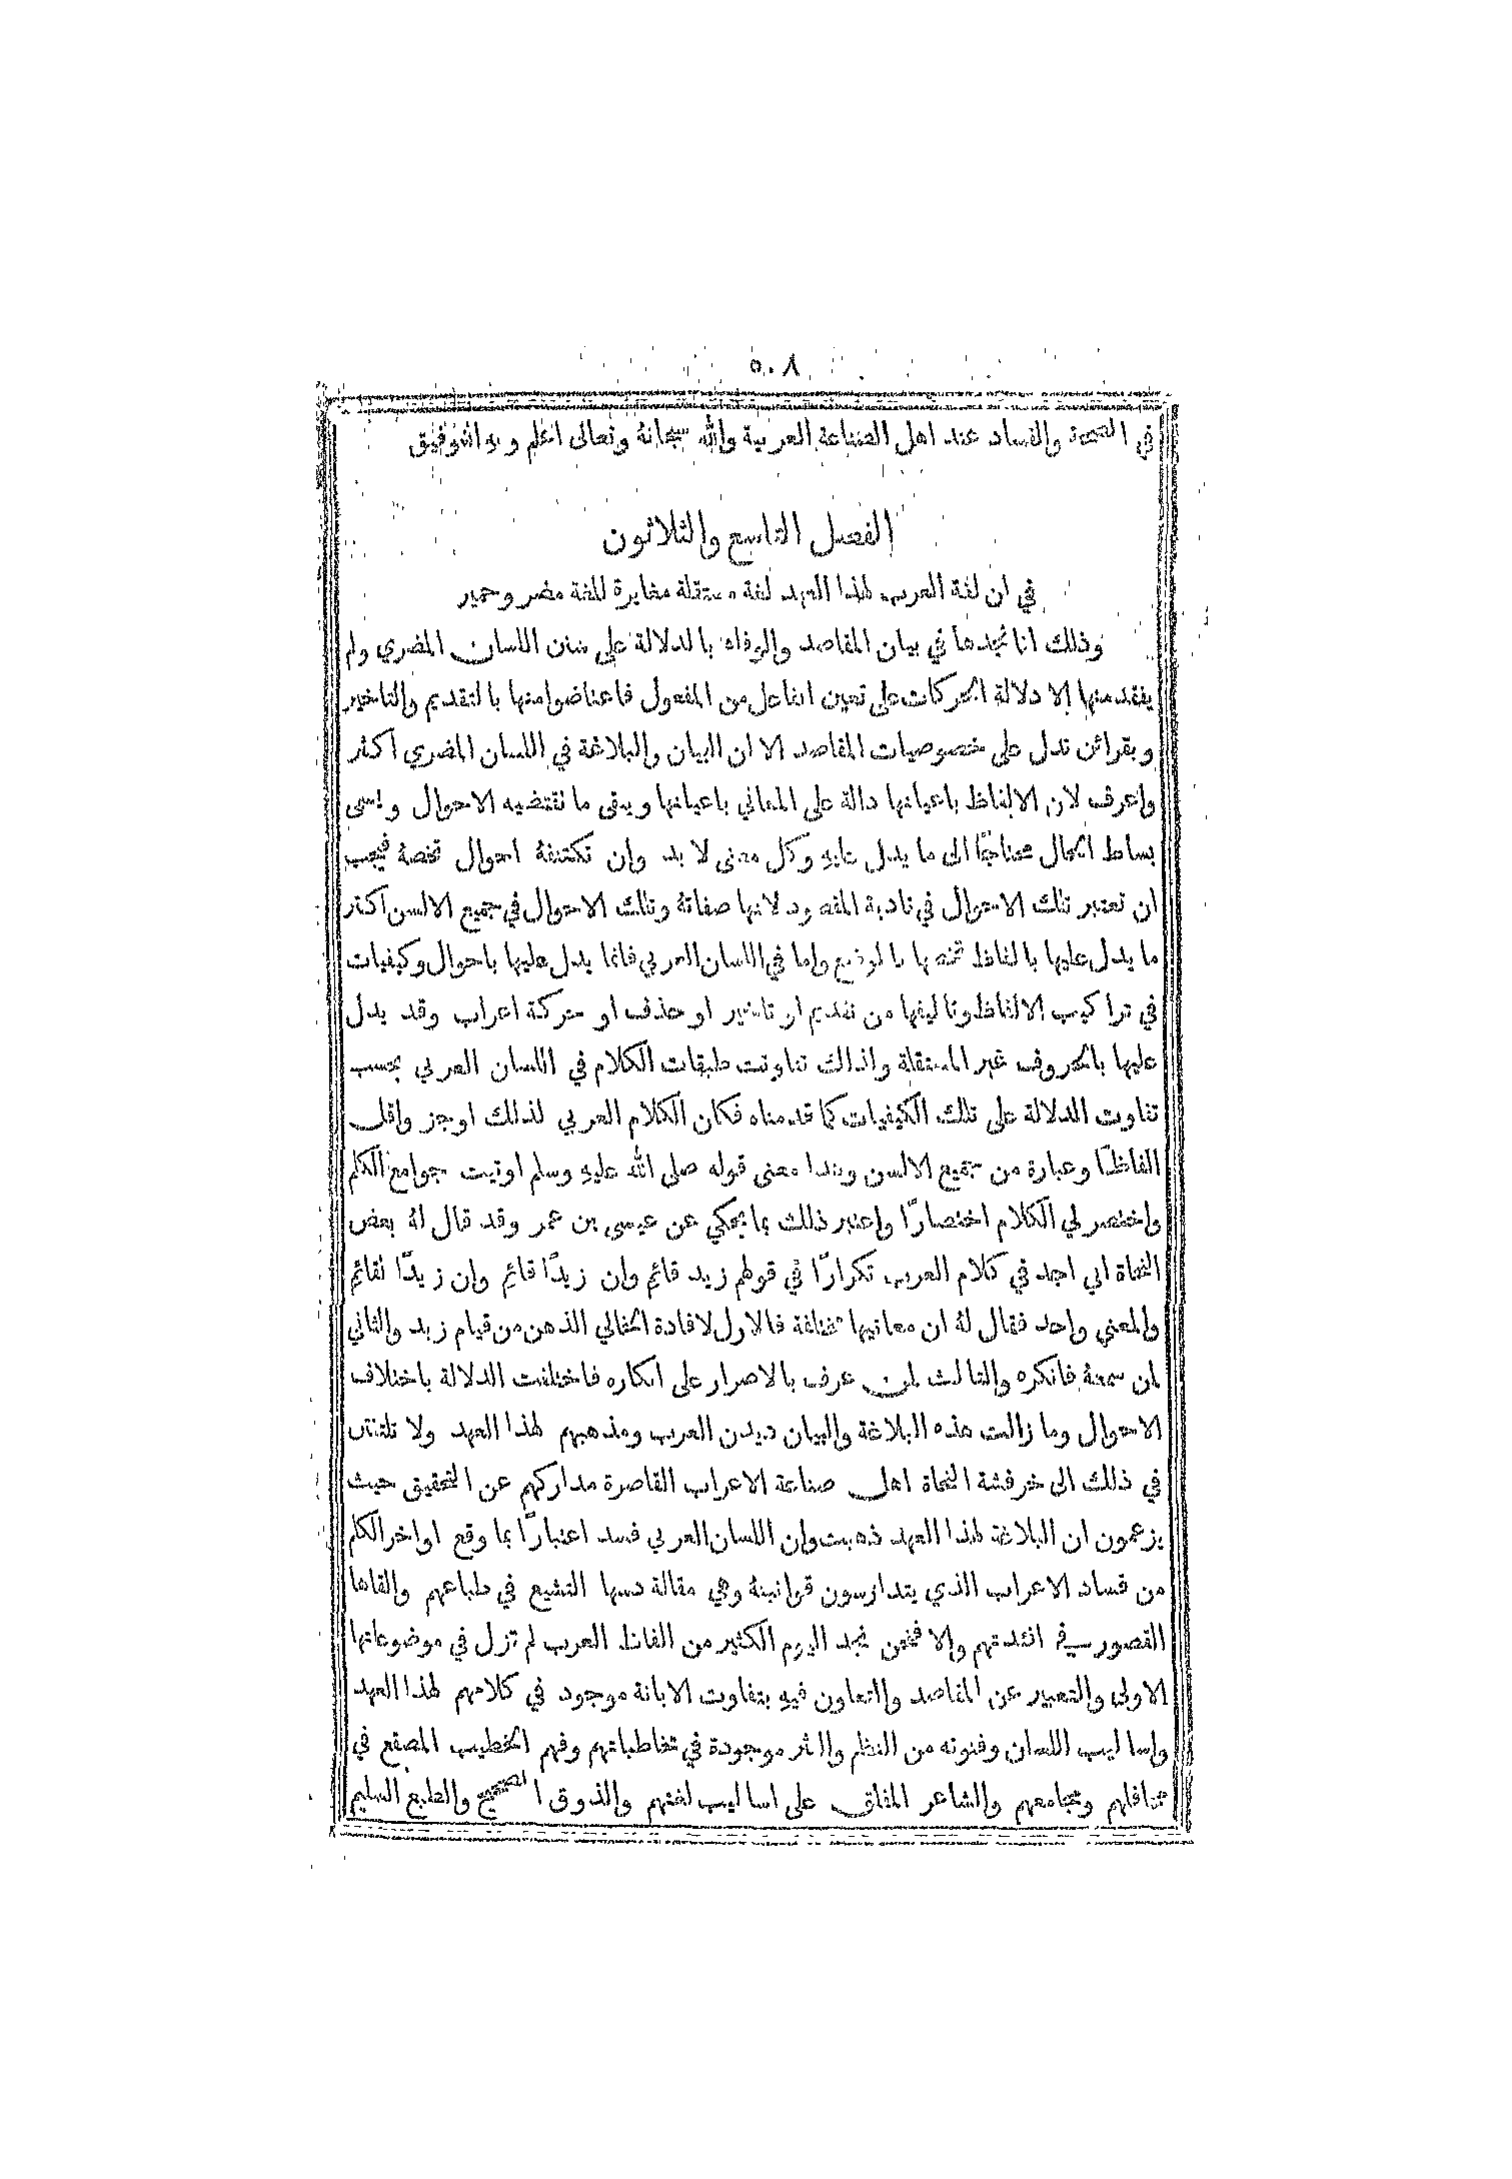 ٥٠٨
في الصحة والفساد عند اهل الصناعة العربية والله سبحانهُ وتعالى اعلم وبه التوفيق
الفصل التاسع والثلاثون
في ان لغة العرب لهذا العهد لغة مستقلة مغايرة للغة مضر وحمير
وذلك انا نجدها في بيان المقاصد والوفاء بالدلالة على سنن اللسان المضري ولم
يفقد منها الا دلالة الحركات على تعين الفاعل من المفعول فاعتاضوا منها بالتقديم والتاخير
وبقرائن تدل على خصوصيات المقاصد الا ان البيان والبلاغة في اللسان المضري اكثر
واعرف لان الالفاظ باعيانها دالة على المعاني باعيانها ويبقى ما تقتضيه الاحوال ويسمى
بساط الحال محتاجًا الى ما يدل عليهِ وكل معنى لا بد وان تكتنفهُ احوال تخصهُ فيجب
ان تعتبر تلك الاحوال في تادية المقصود لانها صفاتهُ وتلك الاحوال في جميع الالسن اكثر
ما يدل عليها بالفاظ تخصها بالوضع واما في اللسان العربي فانما يدل عليها باحوال وكيفيات
في تراكيب الالفاظ وتاليفها من تقديم او تاخير او حذف او حركة اعراب وقد يدل
عليها بالحروف غير المستقلة ولذلك تفاوتت طبقات الكلام في اللسان العربي بحسب
تفاوت الدلالة على تلك الكيفيات كما قدمناه فكان الكلام العربي لذلك اوجز واقل
الفاظًا وعبارة من جميع الالسن وهذا معنى قوله صلى الله عليهِ وسلم اوتيت جوامع الكلم
واختصر لي الكلام اختصارًا واعتبر ذلك بما يحكي عن عيسى بن عمر وقد قال لهُ بعض
النحاة اني اجد في كلام العرب تكرارًا في قولهم زيد قائم وان زيدًا قائم وان زيدًا لقائم
والمعنى واحد فقال لهُ ان معانيها مختلفة فالاول لافادة الخالي الذهن من قيام زيد والثاني
لمن سمعهُ فانكره والثالث لمن عرف بالاصرار على انكاره فاختلفت الدلالة باختلاف
الاحوال وما زالت هذه البلاغة والبيان ديدن العرب ومذهبهم لهذا العهد ولا تلتفتن
في ذلك الى خرفشة النحاة اهل صناعة الاعراب القاصرة مداركهم عن التحقيق حيث
يزعمون ان البلاغة لهذا العهد ذهبت وان اللسان العربي فسد اعتبارًا بما وقع اواخر الكلم
من فساد الاعراب الذي يتدارسون قوانينهُ وهي مقالة دسها التشيع في طباعهم والقاها
القصور في افئدتهم والا فنحن نجد اليوم الكثير من الفاظ العرب لم تزل في موضوعاتها
الاولى والتعبير عن المقاصد والتعاون فيهِ بتفاوت الابانة موجود في كلامهم لهذا العهد
واساليب اللسان وفنونه من النظم والنثر موجودة في مخاطباتهم وفهم الخطيب المصقع في
محافلهم ومجامعهم والشاعر المفلق على اساليب لغتهم والذوق الصحيح والطبع السليم